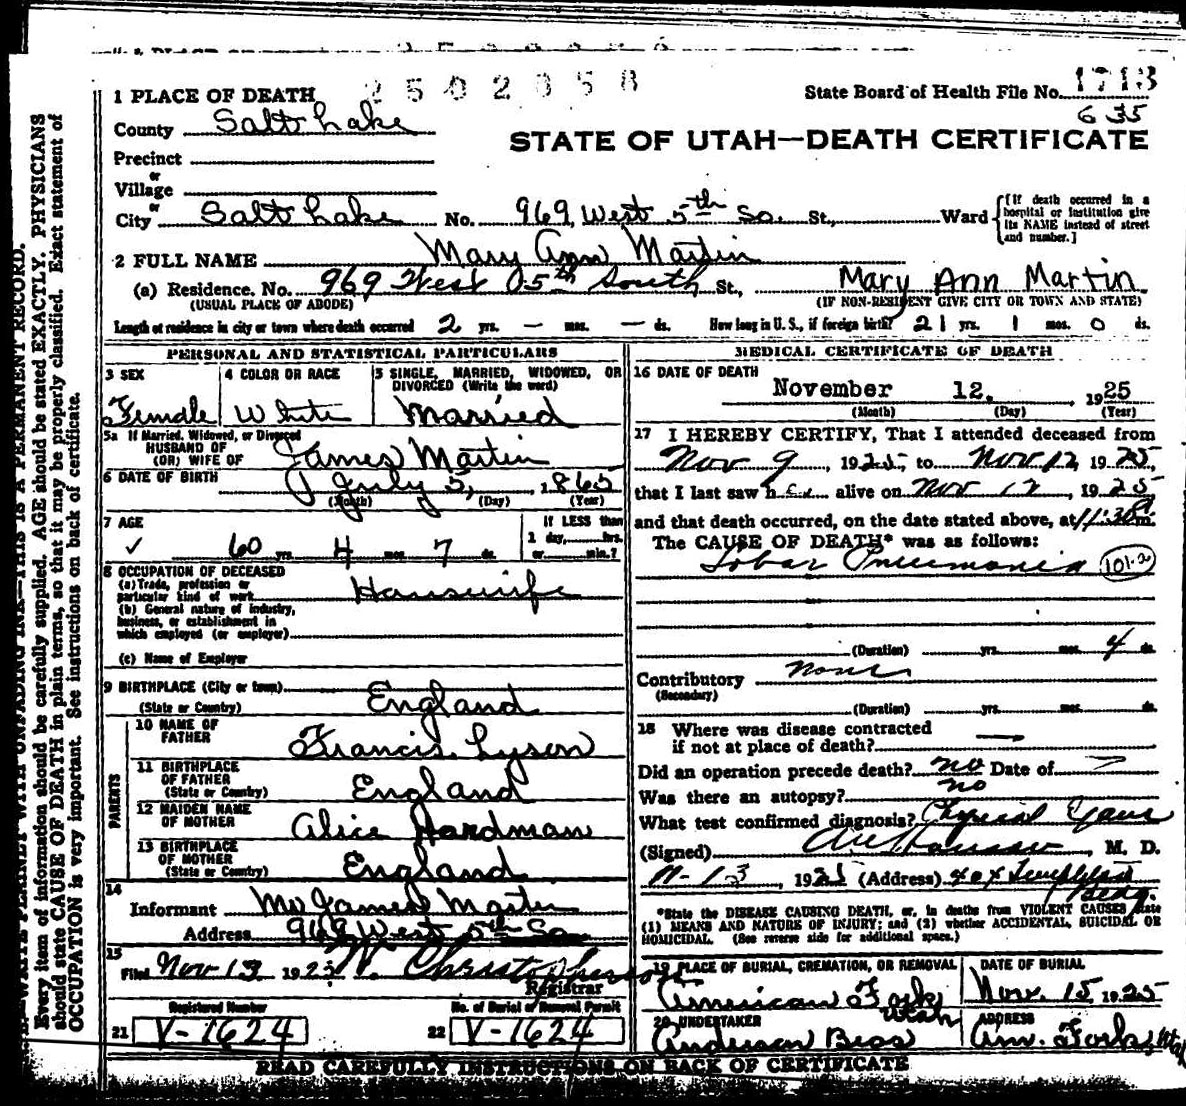 2502358
1 PLACE OF DEATH
State Board of Health File No. 1713
635
County Salt Lake
STATE OF UTAH—DEATH CERTIFICATE
Precinct
or
Village
or
City Salt Lake No. 969 West 5th So. St., Ward
[If death occurred in a hospital or institution give its NAME instead of street and number.]
2 FULL NAME Mary Ann Martin
(a) Residence. No. 969 West 5th South St., Mary Ann Martin
(USUAL PLACE OF ABODE) (IF NON-RESIDENT GIVE CITY OR TOWN AND STATE)
Length of residence in city or town where death occurred 2 yrs. — mos. — ds. How long in U. S., if foreign birth? 21 yrs. 1 mos. 0 ds.
PERSONAL AND STATISTICAL PARTICULARS
3 SEX
Female
4 COLOR OR RACE
White
5 SINGLE, MARRIED, WIDOWED, OR DIVORCED (Write the word)
Married
5a If Married, Widowed, or Divorced
HUSBAND OF
(OR) WIFE OF James Martin
6 DATE OF BIRTH July 5, 1865
(Month) (Day) (Year)
7 AGE
60 yrs. 4 mos. 7 ds.
If LESS than
1 day, hrs.
or min.?
8 OCCUPATION OF DECEASED
(a) Trade, profession or
particular kind of work Housewife
(b) General nature of industry,
business, or establishment in
which employed (or employer)
(c) Name of Employer
9 BIRTHPLACE (City or town)
(State or Country) England
PARENTS
10 NAME OF
FATHER Francis Lyson
11 BIRTHPLACE
OF FATHER
(State or Country) England
12 MAIDEN NAME
OF MOTHER Alice Hardman
13 BIRTHPLACE
OF MOTHER
(State or Country) England
14
Informant Mr James Martin
Address 969 West 5th So
15
Filed Nov 13 1925 Christopherson
Registrar
Registered Number
21 V-1624
No. of Burial or Removal Permit
22 V-1624
MEDICAL CERTIFICATE OF DEATH
16 DATE OF DEATH
November 12, 1925
(Month) (Day) (Year)
17 I HEREBY CERTIFY, That I attended deceased from
Nov 9, 1925, to Nov 12, 1925,
that I last saw her alive on Nov 12, 1925
and that death occurred, on the date stated above, at 11:30 m.
The CAUSE OF DEATH* was as follows:
Lobar Pneumonia 101-2
(Duration) yrs. mos. 4 ds.
Contributory none
(Secondary)
(Duration) yrs. mos. ds.
18 Where was disease contracted
if not at place of death? —
Did an operation precede death? no Date of
Was there an autopsy? no
What test confirmed diagnosis? Physical
(Signed) , M. D.
11-13, 1925 (Address) Bldg.
*State the DISEASE CAUSING DEATH, or, in deaths from VIOLENT CAUSES, state
(1) MEANS AND NATURE OF INJURY; and (2) whether ACCIDENTAL, SUICIDAL OR
HOMICIDAL. (See reverse side for additional space.)
19 PLACE OF BURIAL, CREMATION, OR REMOVAL
American Fork
Utah
DATE OF BURIAL
Nov. 15 1925
20 UNDERTAKER
Anderson Bros
ADDRESS
Am. Fork, Utah
READ CAREFULLY INSTRUCTIONS ON BACK OF CERTIFICATE
WRITE PLAINLY WITH UNFADING INK—THIS IS A PERMANENT RECORD.
Every item of information should be carefully supplied. AGE should be stated EXACTLY. PHYSICIANS
should state CAUSE OF DEATH in plain terms, so that it may be properly classified. Exact statement of
OCCUPATION is very important. See instructions on back of certificate.